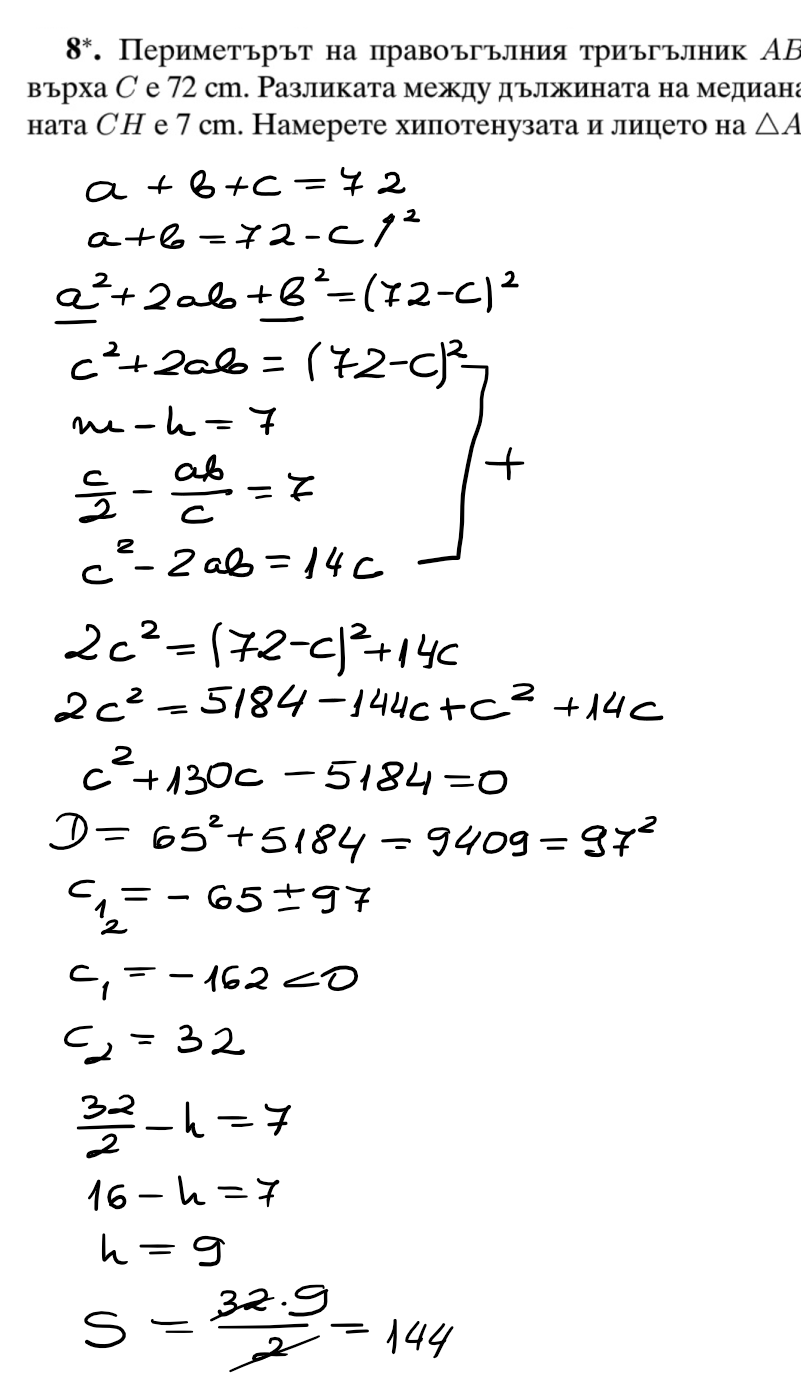 8*. Периметърът на правоъгълния триъгълник AB
върха C е 72 cm. Разликата между дължината на медиана
ната CH е 7 cm. Намерете хипотенузата и лицето на △A
a + b + c = 72
a + b = 72 - c /²
a² + 2ab + b² = (72 - c)²
c² + 2ab = (72 - c)²
m - h = 7
c/2 - ab/c = 7
+
c² - 2ab = 14c
2c² = (72 - c)² + 14c
2c² = 5184 - 144c + c² + 14c
c² + 130c - 5184 = 0
D = 65² + 5184 = 9409 = 97²
c₁,₂ = - 65 ± 97
c₁ = - 162 < 0
c₂ = 32
32/2 - h = 7
16 - h = 7
h = 9
S = 32·9/2 = 144